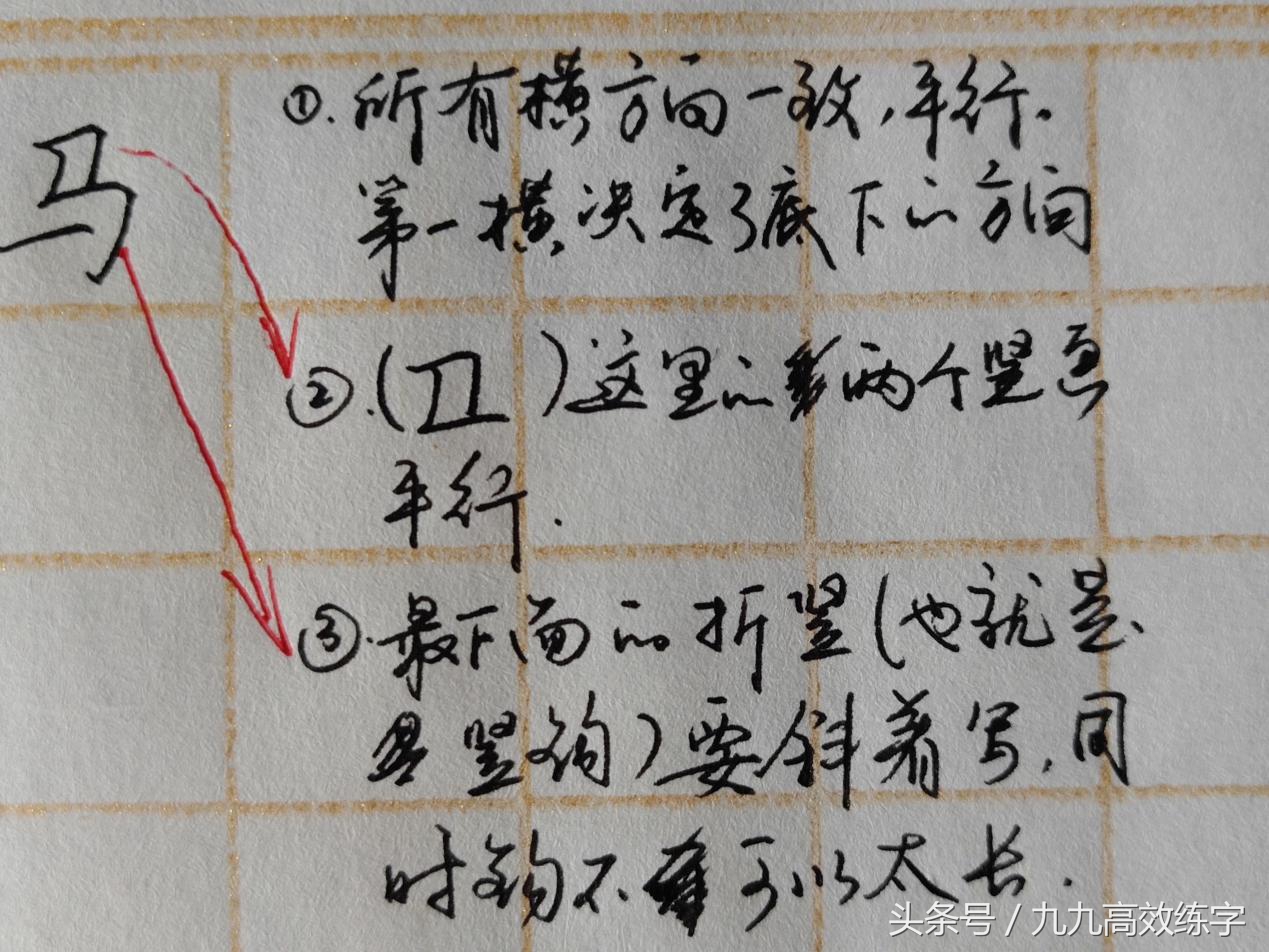 马
①.所有横方向一致,平行.
第一横决定了底下的方向
②.( )这里的两个竖要
平行.
③.最下面的折竖(也就是
竖钩)要斜着写,同
时钩不可以太长.
头条号/九九高效练字